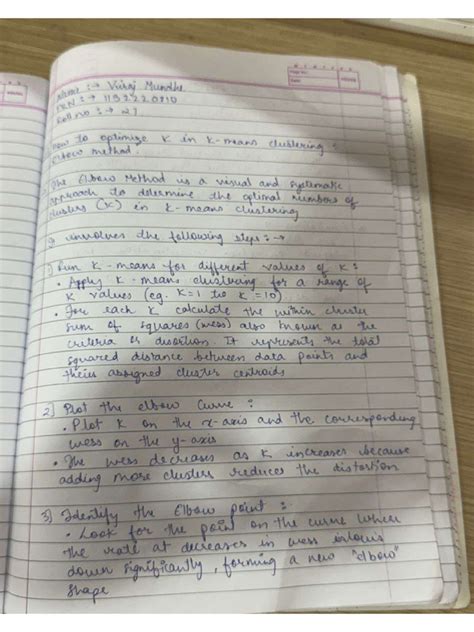 Name :→ Viraj Mundhe
PRN :→ 1152220810
Roll no :→ 27
How to optimize K in K-means clustering :
Elbow method.
The Elbow Method is a visual and systematic
approach to determine the optimal numbers of
clusters (K) in K-means clustering
It involves the following steps :→
1) Run K-means for different values of K :
• Apply K-means clustering for a range of
K values (eg. K=1 to K=10)
• For each K calculate the within cluster
sum of squares (wcss) also known as the
criteria or distortion. It represents the total
squared distance between data points and
their assigned cluster centroids
2) Plot the elbow curve :
• Plot K on the x-axis and the corresponding
wcss on the y-axis
• The wcss decreases as K increases because
adding more clusters reduces the distortion
3) Identify the Elbow point :
• Look for the point on the curve where
the rate at decreases in wcss
down significantly, forming a new "elbow"
shape